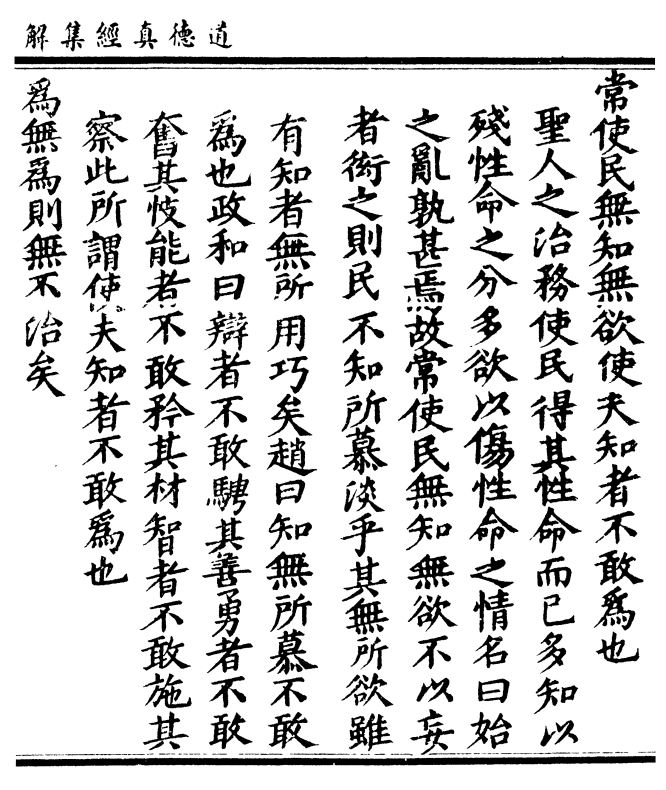 道德真經集解
常使民無知無欲使夫知者不敢爲也
聖人之治務使民得其性命而已多知以
殘性命之分多欲以傷性命之情名曰始
之亂孰甚焉故常使民無知無欲不以妄
者衒之則民不知所慕淡乎其無所欲雖
有知者無所用巧矣趙曰知無所慕不敢
爲也政和曰辯者不敢騁其善勇者不敢
奮其忮能者不敢矜其材智者不敢施其
察此所謂使夫知者不敢爲也
爲無爲則無不治矣